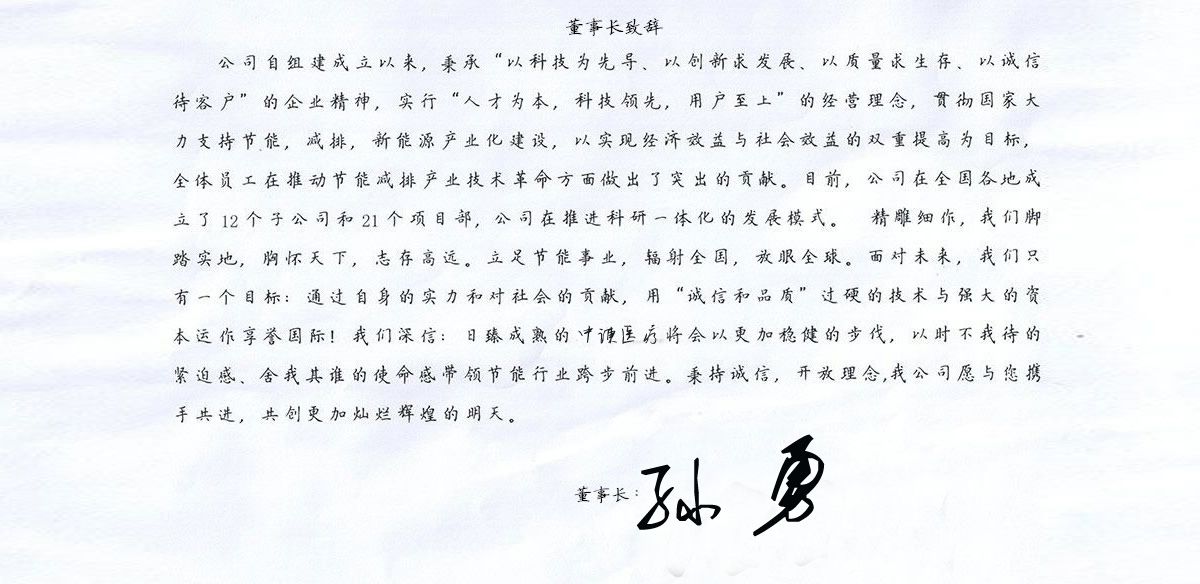 董事长致辞
公司自组建成立以来，秉承“以科技为先导、以创新求发展、以质量求生存、以诚信
待客户”的企业精神，实行“人才为本，科技领先，用户至上”的经营理念，贯彻国家大
力支持节能，减排，新能源产业化建设，以实现经济效益与社会效益的双重提高为目标，
全体员工在推动节能减排产业技术革命方面做出了突出的贡献。目前，公司在全国各地成
立了12个子公司和21个项目部，公司在推进科研一体化的发展模式。 精雕细你，我们脚
踏实地，胸怀天下，志存高远。立足节能事业，辐射全国，放眼全球。面对未来，我们只
有一个目标：通过自身的实力和对社会的贡献，用“诚信和品质”过硬的技术与强大的资
本运作享誉国际！我们深信：日臻成熟的中医疗将会以更加稳健的步伐，以时不我待的
紧迫感、舍我其谁的使命感带领节能行业跨步前进。秉持诚信，开放理念,我公司愿与您携
手共进，共创更加灿烂辉煌的明天。
董事长：孙勇